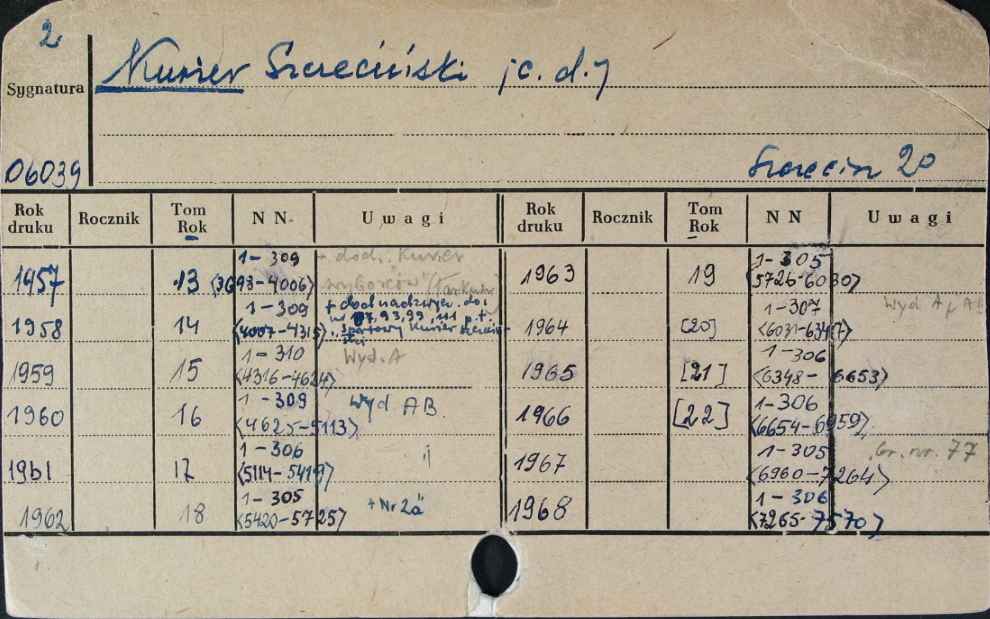 2
Kurier Szczeciński /c. d./
Sygnatura
06039
Szczecin 20
Rok druku Rocznik Tom Rok N N Uwagi Rok druku Rocznik Tom Rok N N Uwagi
1957 13 1-309 <3698-4006> + dod. Kurier Wyborców
1958 14 1-309 <4007-4315> + dod nadzwycz. do nr 93, 99, 111 p.t. "Sportowy Kurier Szczeciński
1959 15 1-310 <4316-4624> Wyd. A
1960 16 1-309 <4625-5113> Wyd AB.
1961 17 1-306 <5114-5419> "
1962 18 1-305 <5420-5725> + Nr 2a
1963 19 1-305 <5726-6030>
1964 [20] 1-307 <6031-6347> Wyd A, AB
1965 [21] 1-306 <6348-6653>
1966 [22] 1-306 <6654-6959>
1967 1-305 <6960-7264> br. nr. 77
1968 1-306 <7265-7570>